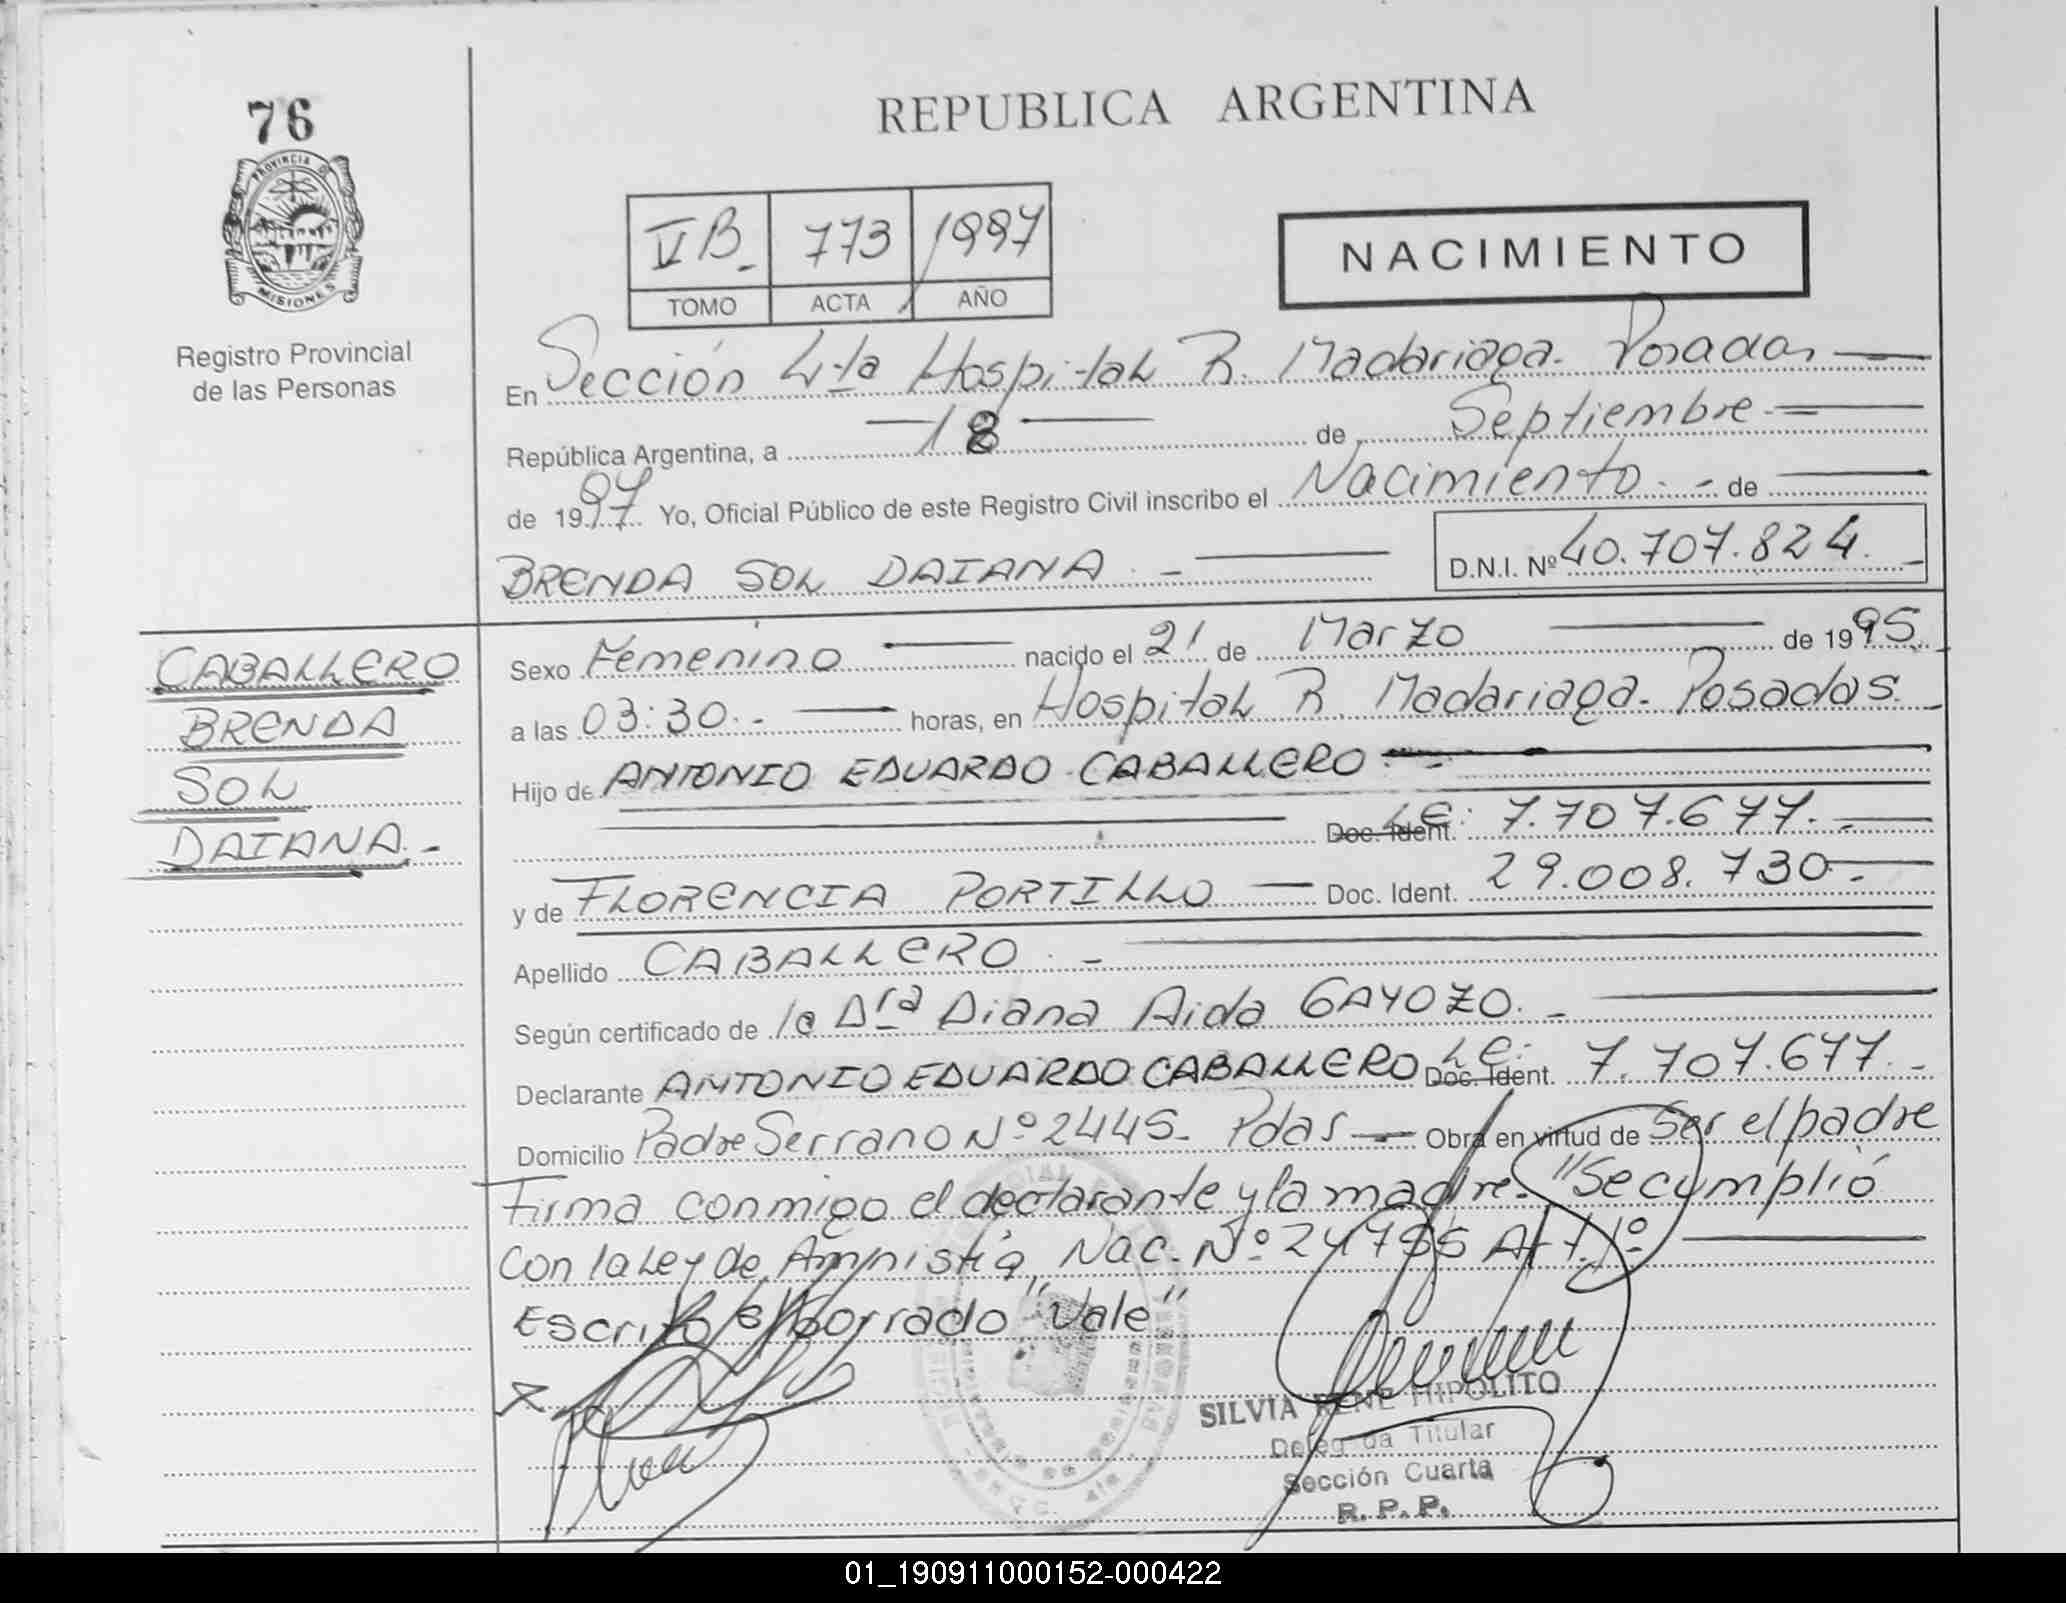 76
PROVINCIA DE
MISIONES
Registro Provincial
de las Personas
REPUBLICA ARGENTINA
VB.- 773 1997
TOMO ACTA AÑO
NACIMIENTO
En Sección 4ta Hospital R. Madariaga. Posadas
República Argentina, a 18 de Septiembre
de 1997 Yo, Oficial Público de este Registro Civil inscribo el Nacimiento.- de
BRENDA SOL DAIANA.- D.N.I. Nº 40.707.824.-
CABALLERO
BRENDA
SOL
DAIANA.-
Sexo Femenino nacido el 21 de Marzo de 1995.-
a las 03:30.- horas, en Hospital R. Madariaga. Posadas.-
Hijo de ANTONIO EDUARDO CABALLERO.-
Doc. Ident. LE: 7.707.677.-
y de FLORENCIA PORTILLO Doc. Ident. 29.008.730.-
Apellido CABALLERO.-
Según certificado de la Dra Diana Aida GAYOZO.-
Declarante ANTONIO EDUARDO CABALLERO Doc. Ident. LE: 7.707.677.-
Domicilio Padre Serrano Nº 2445. Pdas Obra en virtud de Ser el padre
Firma conmigo el declarante y la madre. "Se cumplió
con la Ley de Amnistía Nac. Nº 24755 Art. 1º
Escrito s/borrado "Vale"
SILVIA RENE HIPOLITO
Delegada Titular
Sección Cuarta
R. P. P.
01_190911000152-000422